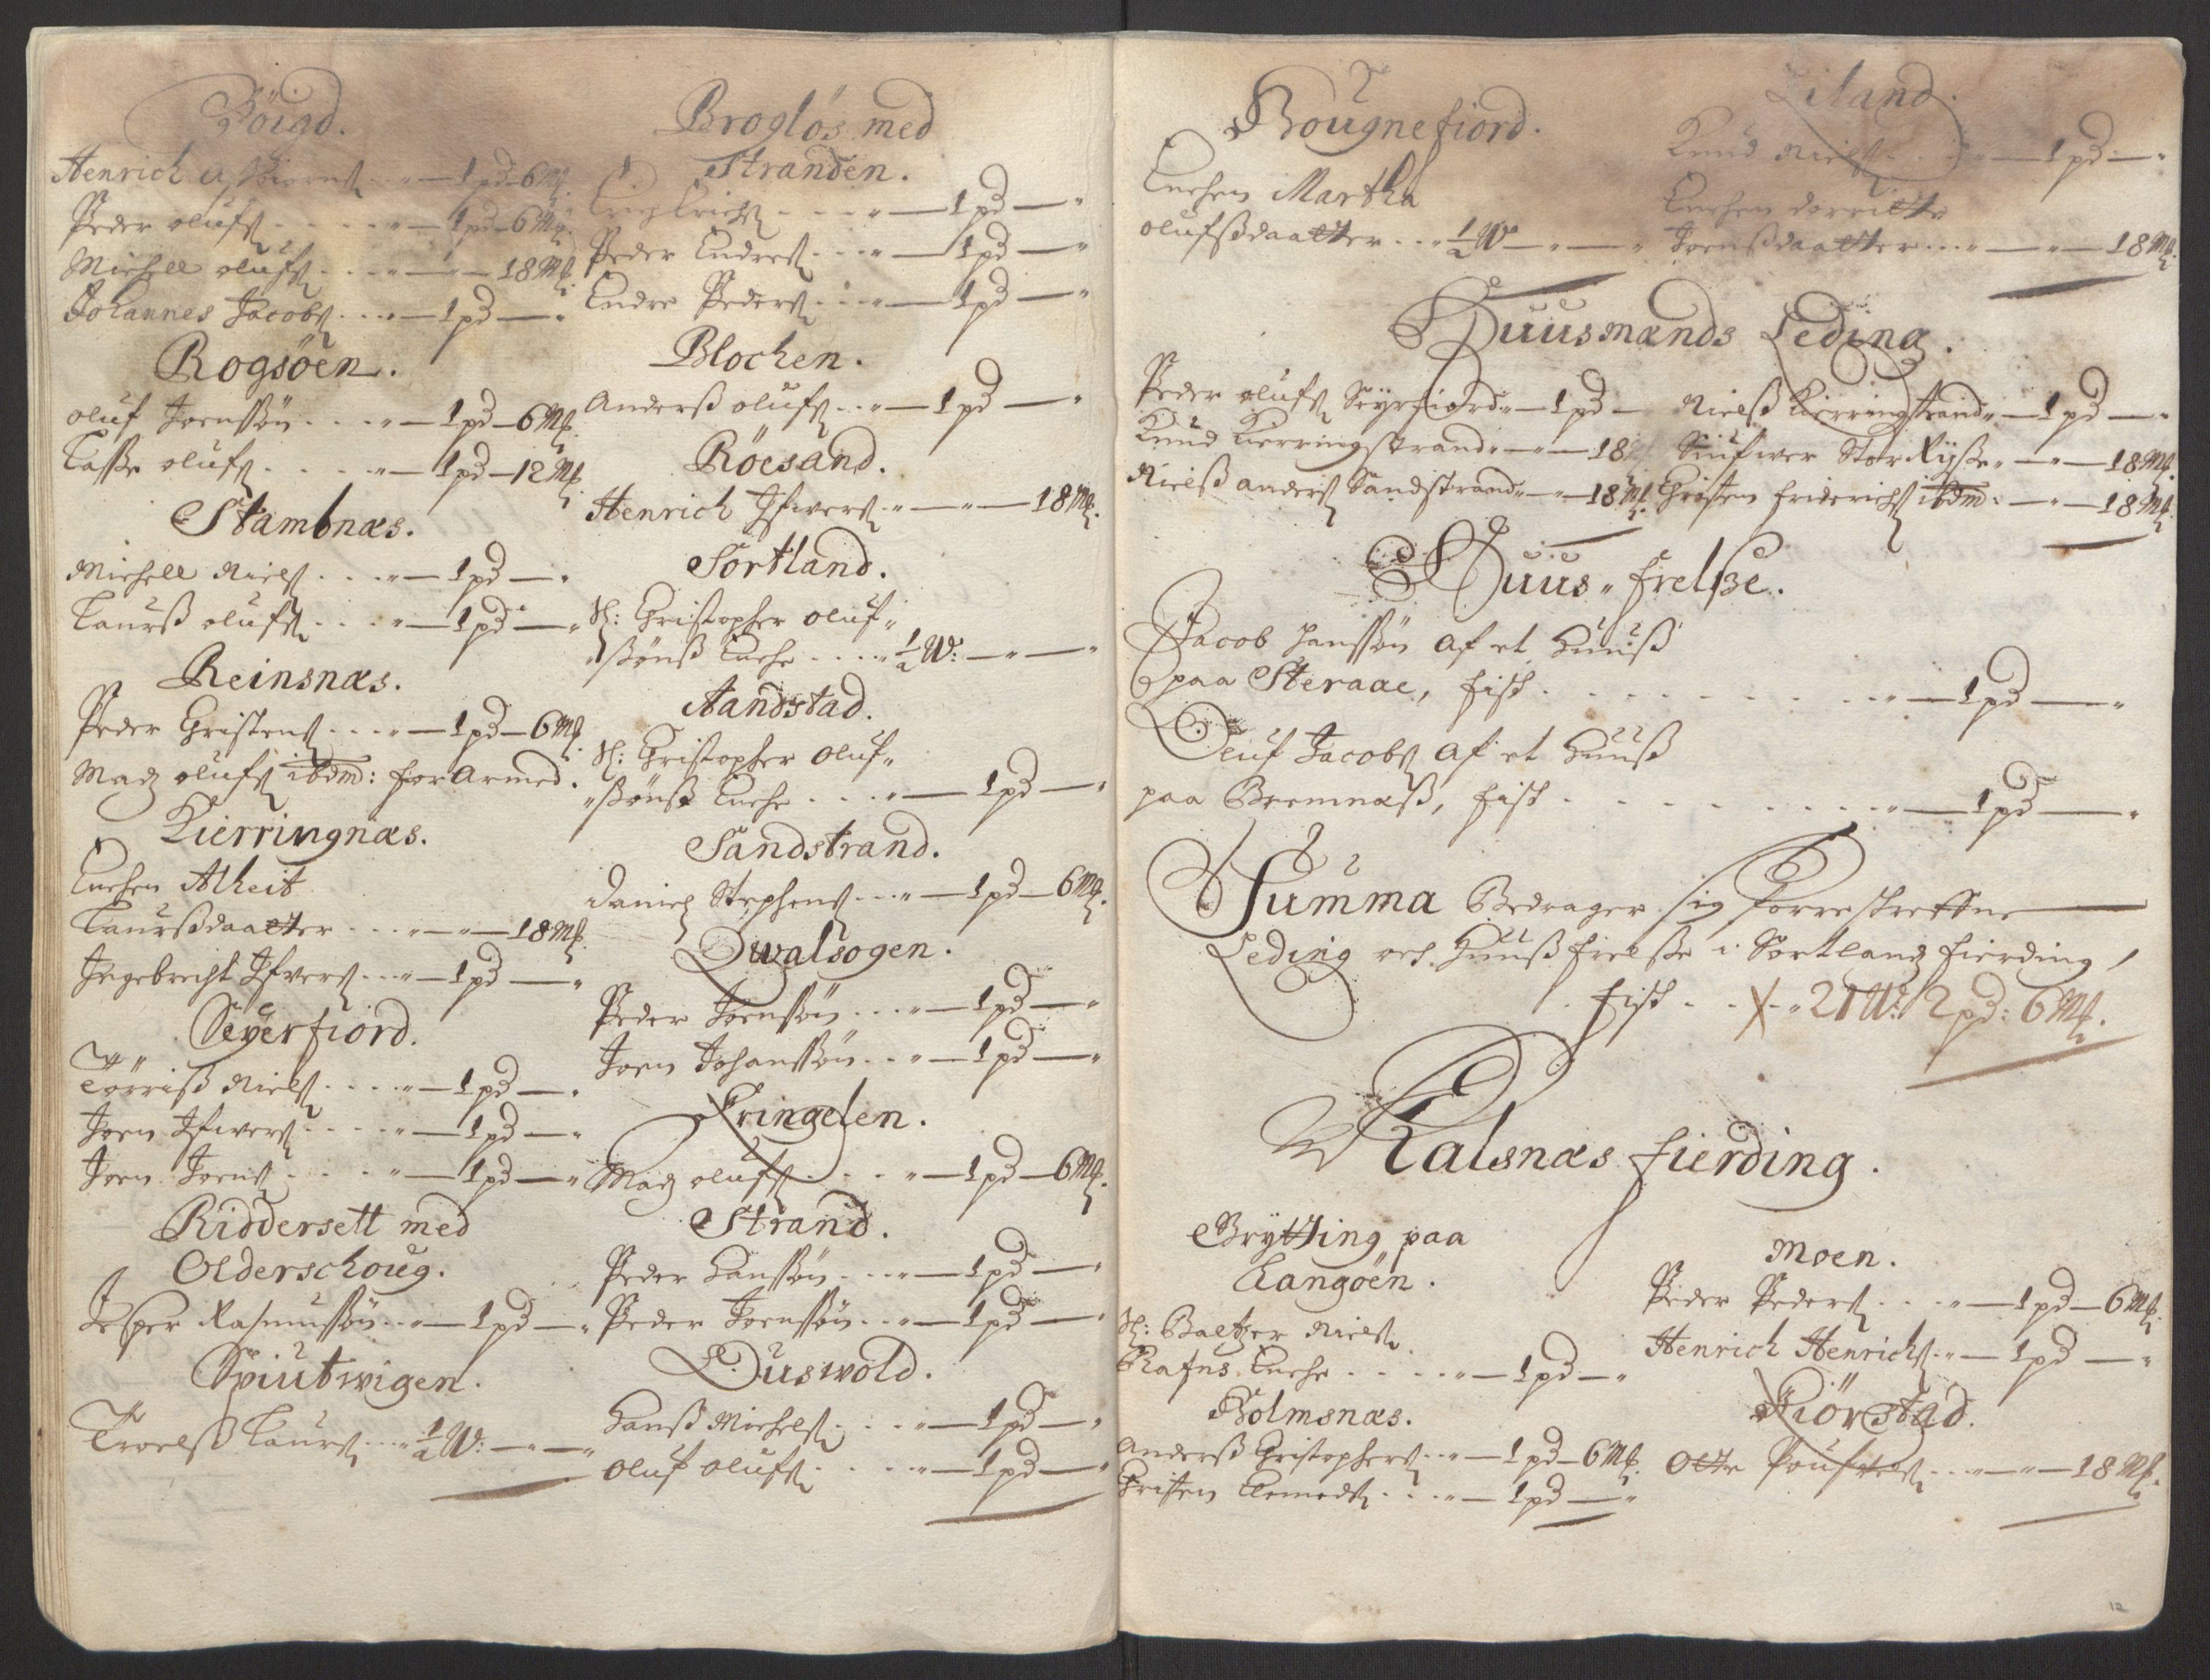 Böigd.
Henrich Asbiörns. . . „ — 1 pd — 6 M&.
Peder olufs. . . . . „ — 1 pd — 6 M&.
Michell olufs. . . . „ — „ — 18 M&.
Johannes Jacobs. . . „ — 1 pd — „
Rogsöen.
oluf Joenssön . . . . „ — 1 pd — 6 M&.
Lasse olufs. . . . . „ — 1 pd — 12 M&.
Stambnæs.
Michell Niels. . . . „ — 1 pd — „
Laurß olufs. . . . „ — 1 pd — „
Reinsnæs.
Peder Christens. . . . „ — 1 pd — 6 M&.
Madz olufs ibdm: forarmed.
Kierringnæs.
Enchen Alheit
Laurßdaatter . . . „ — „ — 18 M&.
Ingebrecht Ifvers. . . „ — 1 pd — „
Seyerfiord.
Törriß Niels. . . . „ — 1 pd — „
Joen Ifwers. . . . . „ — 1 pd — „
Joen Joens. . . . . „ — 1 pd — „
Riddersett med
Olderschoug.
Jesper Rasmussön . . „ — 1 pd — „
Spiutwigen.
Troelß Laurs. . . „ ½ W: — „ — „
Brogløs med
Stranden.
Erich Erichs. . . . . „ — 1 pd — „
Peder Endres. . . . „ — 1 pd — „
Endre Peders. . . . „ — 1 pd — „
Blochen.
Anderß olufs. . . „ — 1 pd — „
Röesand.
Henrich Ifwers. „ — „ — 18 M&.
Sortland.
Sl: Christopher Oluf„
„ßönß Enche . . . . „ ½ W: — „ — „
Aandstad.
Sl: Christopher Oluf„
„ßönß Enche . . . . „ — 1 pd — „
Sandstrand.
Daniel Stephens. . . „ — 1 pd — 6 M&.
Qwalsogen.
Peder Joenssön . . . „ — 1 pd — „
Joen Johanssön . . „ — 1 pd — „
Kringelen.
Madz olufs. . . . „ — 1 pd — 6 M&.
Strand.
Peder Hanssön . . . „ — 1 pd — „
Peder Joenssön . . „ — 1 pd — „
Quswold.
Hanß Michels. . . . „ — 1 pd — „
Oluf olufs. . . . . „ — 1 pd — „
Bougnefiord.
Enchen Martha
olufsßdaatter . . . „ ½ W — „ — „
Eiland.
Knud Niels. . . . „ — 1 pd — „
Enchen dorrilte
Joenßdaatter . . . „ — „ — 18 M&.
Huusmænds Leding.
Peder olufs Seyrfiord „ — 1 pd —
Nielß Kierringstrand „ — 1 pd — „
Knud Kierringstrand „ — „ — 18
Siufwer Stor Ryße „ — „ — 18 M&.
Nielß anders Sandstrand „ — „ — 18 M&.
Christen Friderichs ibdm: — „ — 18 M&.
Huus„frelße.
Jacob Hanssön af et Huuß
paa Steraae, fisk . . . . . . . . „ — 1 pd — „
Oluf Jacobs af et Huuß
paa Bremnæß, fisk . . . . . . . „ — 1 pd — „
Summa Bedrager sig forreskrefne —
Leding och Huußfrelße i Sortlandz fierding,
fisk . . . „ 21 W: 2 pd: 6 M&.
Kalsnæs fierding.
Brytting paa
Langöen.
Sl: Baltzer Niels.
Rafns Enche . . . . „ — 1 pd — „
Holmsnæs.
Anderß Christophers. . „ — 1 pd — 6 M&.
Christen Clemeds. . . „ — 1 pd — „
Moen.
Peder Peders. . . . „ — 1 pd — 6 M&.
Henrich Henrichs. . „ — 1 pd — „
Kiörstad.
Otte Poufvels. . . . „ — „ — 18 M&.
12